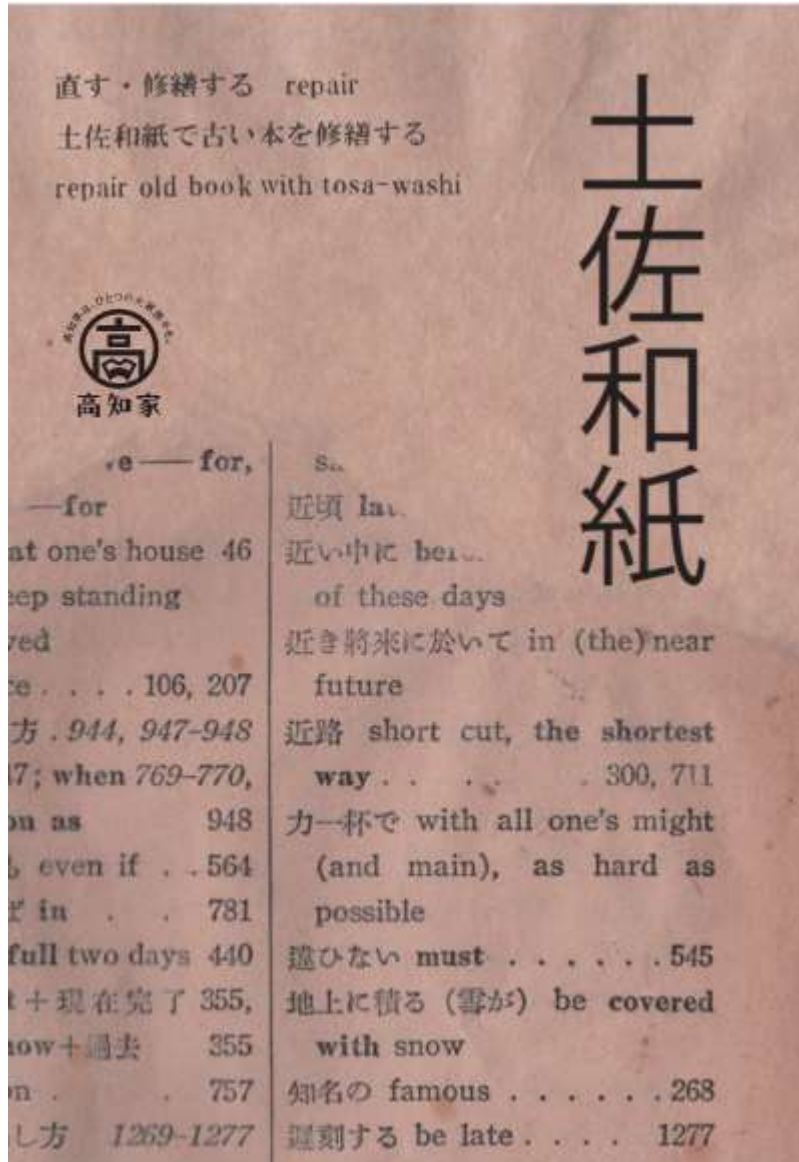 直す・修繕する repair
土佐和紙で古い本を修繕する
repair old book with tosa-washi
土佐和紙
高知県は、ひとつの大家族やき。
高
高知家
e — for,
—for
at one's house 46
eep standing
ved
ce . . . . 106, 207
方 . 944, 947–948
17; when 769–770,
on as 948
even if . . 564
in . . 781
full two days 440
＋現在完了 355,
now＋過去 355
on . . 757
し方 1269–1277
近頃
近い中に
of these days
近き將來に於いて in (the) near
future
近路 short cut, the shortest
way . . . . 300, 711
力一杯で with all one's might
(and main), as hard as
possible
違ひない must . . . . . . . 545
地上に積る (雪が) be covered
with snow
知名の famous . . . . . . . 268
遲刻する be late . . . . 1277